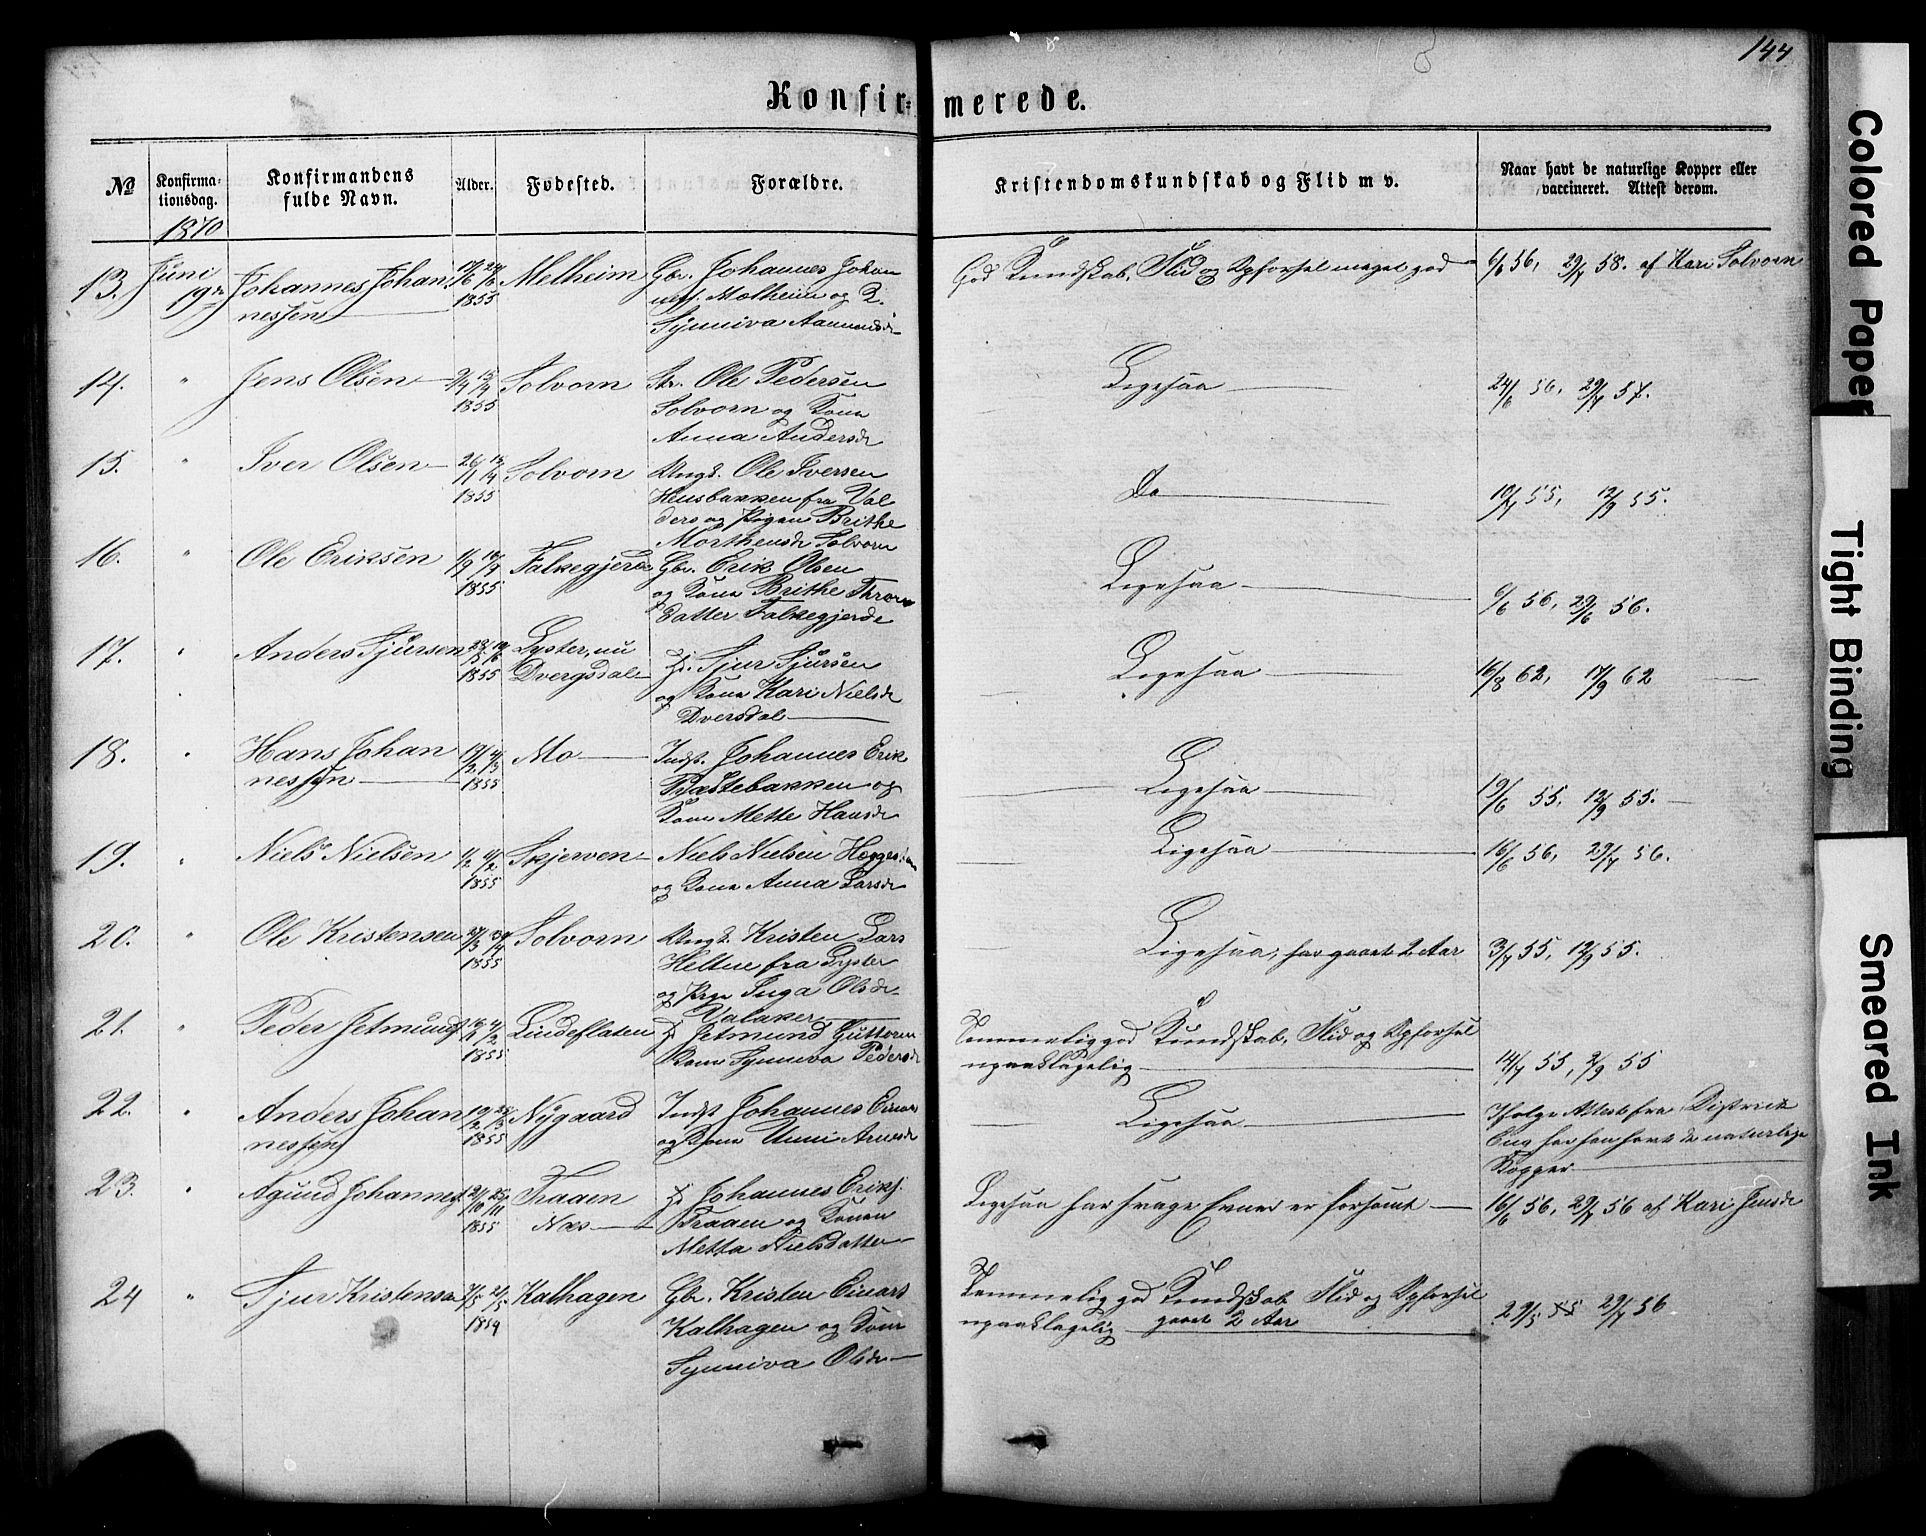 144
Konfir- merede.
No
Konfirma-
tionsdag.
Konfirmandens
fulde Navn.
Alder.
Fødested.
Forældre.
Kristendomskundskab og Flid m v.
Naar havt de naturlige Kopper eller
vaccineret. Attest derom.
1870
13. Juni Johannes Johan Melheim Gbr. Johannes Johan
19de nessen 1855 Melheim og K.
Synniva
God Kundskab, Flid og Opførsel meget god 6/6 56, 29/7 58. af Kari Solvorn
14. " Jens Olsen 1855 Solvorn Str. Ole Pedersen
Solvorn og Kone
Anna Andersdr
Ligesaa 24/6 56, 29/7 57.
15. " Iver Olsen 1855 Solvorn Ungk. Ole Iversen
Hensbakken fra Val
ders og Pigen Brithe
Morthensdr Solvorn
Do 10/7 55, 12/9 55.
16. " Ole Eriksen 1855 Falkegjerde Gbr. Erik Olsen
og Kone Brithe Thron
datter Falkegjerde
Ligesaa 6/6 56, 29/6 56.
17. " Anders Sjursen 1855 Lyster, nu
Dvergsdal
Sjur Sjursen
og Kone Kari Nielsdr
Dversdal
Ligesaa 16/8 62, 17/9 62
18. " Hans Johan
nessen 1855 Mo Indst. Johannes Erik
Bakken og
Kone Mette Hansdr
Ligesaa 19/6 55, 12/9 55.
19. " Niels Nielsen 1855 Skjerven Niels Nielsen
og Kone Anna Larsdr
Ligesaa 16/6 56, 29/7 56.
20. " Ole Kristensen 1855 Solvorn Ungk. Kristen Lars
Heltne fra Lyster
og Pige Inga Olsdr
Valaker
Ligesaa, har gaaet 2 Aar 3/7 55, 12/9 55.
21. " Peder Jetmunds 1855 Lindeflaten Jetmund Guttorm
Kone Synneva Pedersdr
Temmelig god Kundskab, Flid og Opførsel
upaaklagelig 14/7 55, 2/9 55
22. " Anders Johan
nessen 1855 Nygaard Indst Johannes Einars
og Kone Unni Arnesdr
Ligesaa Ifølge Attest fra District
har han havt de naturlige
Kopper
23. " Agund Johannes 1855 Traaen
Næs
Johannes Eriks
Traaen og Konen
Metta Nielsdatter
Ligesaa har svage Evner er forsømt 16/6 56, 29/7 56 af Kari Jensdr
24 " Sjur Kristensen 1854 Kalhagen Gbr. Kristen Einars
Kalhagen og Kone
Synniva Olsdr
Temmelig god Kundskab Flid og Opførsel
upaaklagelig gaaet 2 Aar 29/5 55 29/7 56
Colored Paper
Tight Binding
Smeared Ink